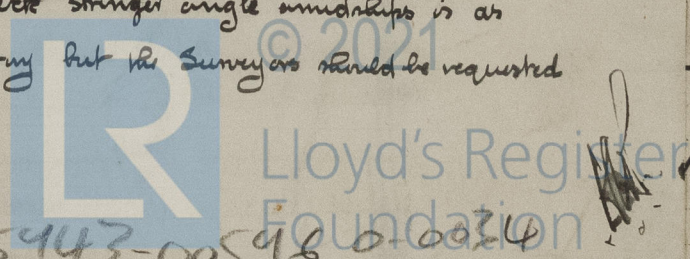 stringer angle amidships is as
but the Surveyors should be requested
© 2021
LR
Lloyd's Register
Foundation
0-0034